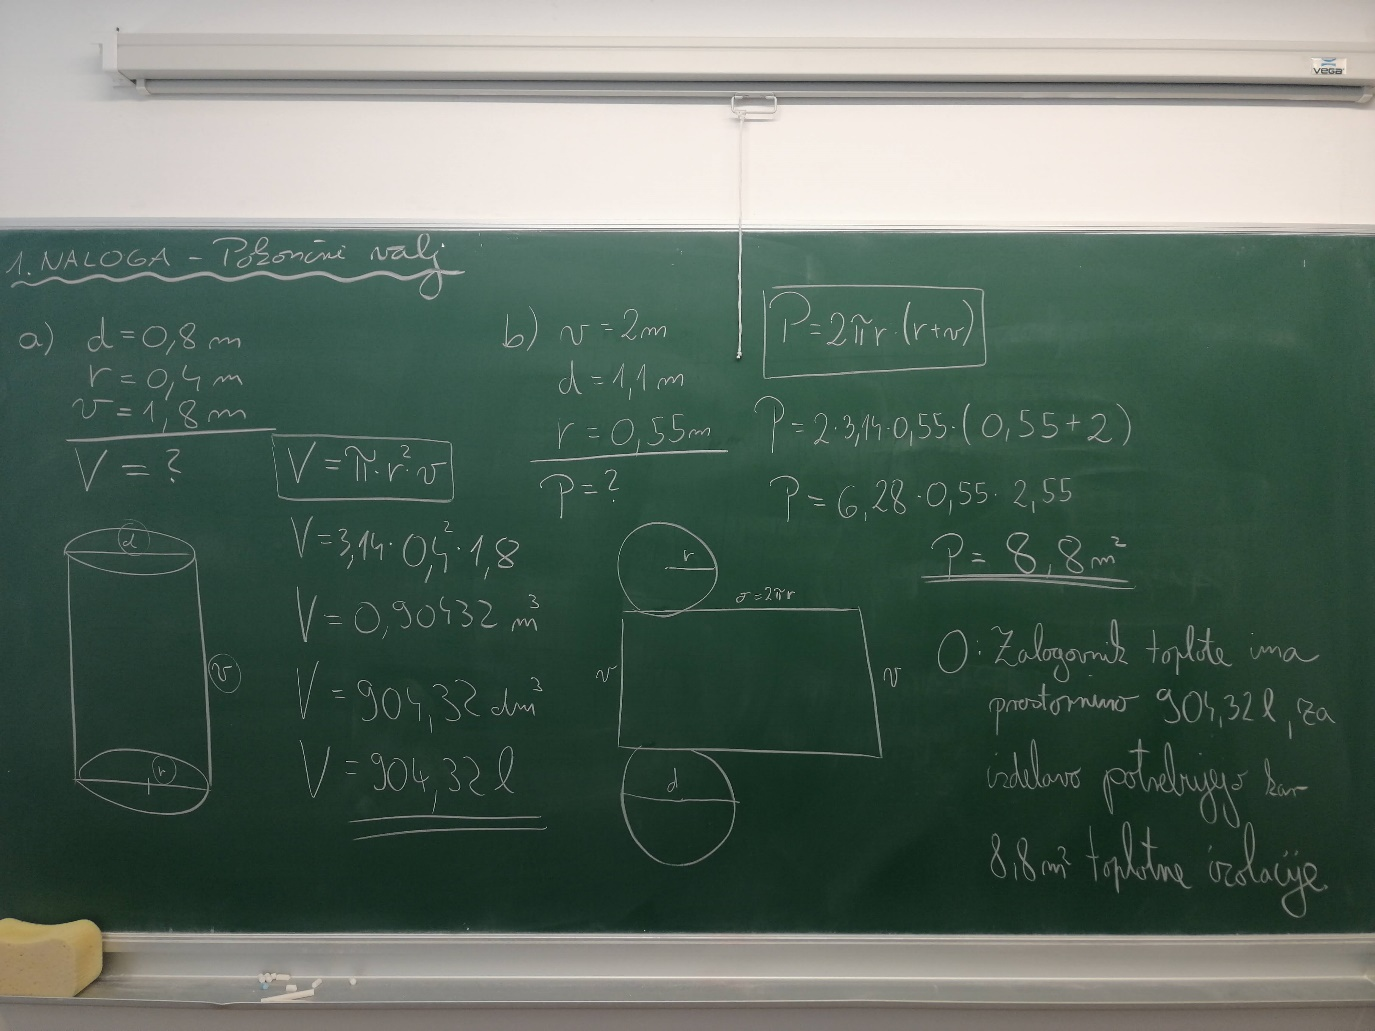 vega
1. NALOGA - Pokončni valj
a) d = 0,8 m
r = 0,4 m
v = 1,8 m
V = ?
V = π · r² · v
V = 3,14 · 0,4² · 1,8
V = 0,90432 m³
V = 904,32 dm³
V = 904,32 l
d
v
r
b) v = 2m
d = 1,1 m
r = 0,55m
P = ?
P = 2πr · (r+v)
P = 2 · 3,14 · 0,55 · (0,55 + 2)
P = 6,28 · 0,55 · 2,55
P = 8,8 m²
r
σ = 2πr
v
v
d
O: Zalogovnik toplote ima
prostornino 904,32 l, za
izdelavo potrebujejo kar
8,8 m² toplotne izolacije.